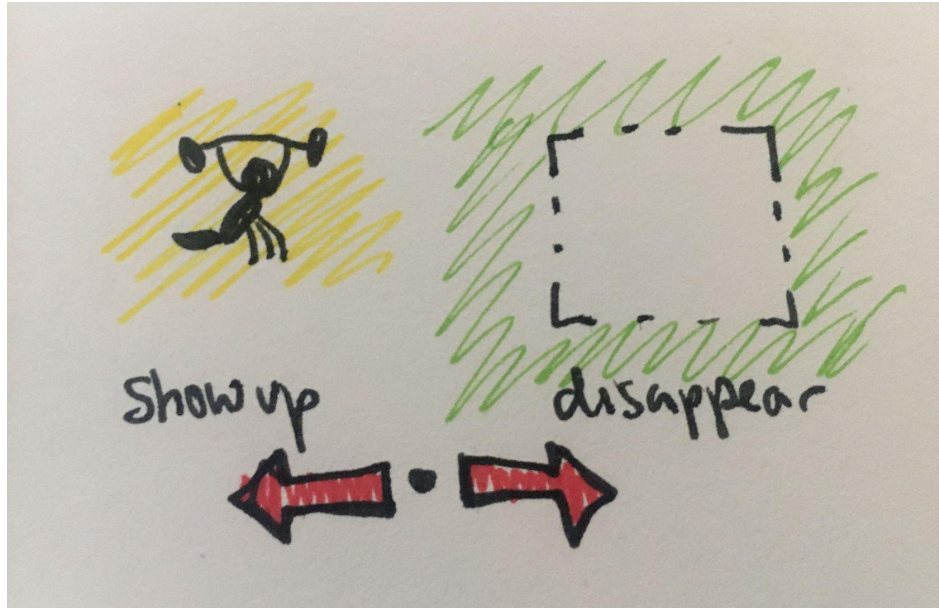 show up
disappear